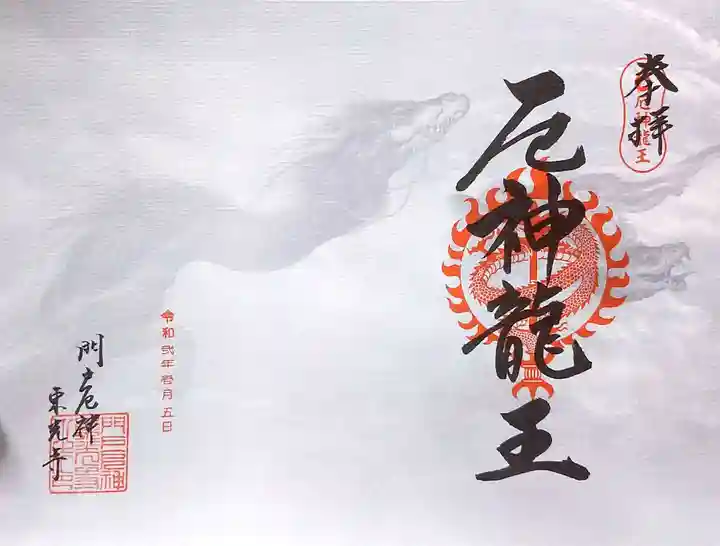 奉拝
厄神龍王
厄神龍王
令和弐年壱月五日
門戸厄神
東光寺